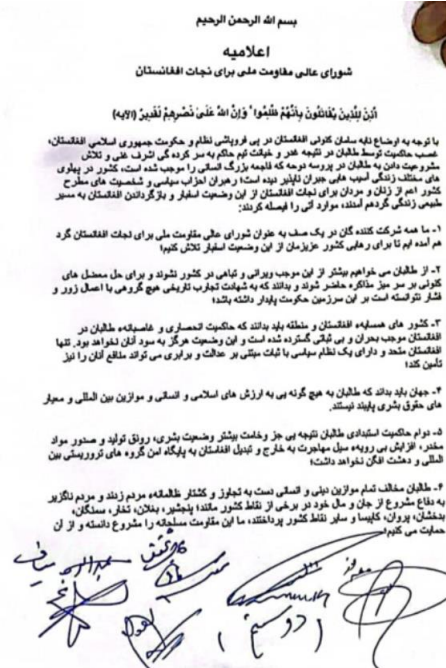 بسم الله الرحمن الرحیم
اعلامیه
شورای عالی مقاومت ملی برای نجات افغانستان
أُذِنَ لِلَّذِينَ يُقَاتَلُونَ بِأَنَّهُمْ ظُلِمُوا وَإِنَّ اللَّهَ عَلَىٰ نَصْرِهِمْ لَقَدِيرٌ (الآیه)
با توجه به اوضاع نابه سامان کنونی افغانستان در پی فروپاشی نظام و حکومت جمهوری اسلامی افغانستان،
غصب حاکمیت توسط طالبان در نتیجه غدر و خیانت تیم حاکم به سر کرده گی اشرف غنی و تلاش
مشروعیت دادن به طالبان در پروسه دوحه که فاجعه بزرگ انسانی را موجب شده است، کشور در پهلوی
های مختلف زندگی آسیب هایی جبران ناپذیر دیده است؛ رهبران احزاب سیاسی و شخصیت های مطرح
کشور اعم از زنان و مردان برای نجات افغانستان از این وضعیت اسفبار و بازگرداندن افغانستان به مسیر
طبیعی زندگی گردهم آمدند، موارد آتی را فیصله کردند:
۱- ما همه شرکت کننده گان در یک صف به عنوان شورای عالی مقاومت ملی برای نجات افغانستان گرد
هم آمده ایم تا برای رهایی کشور عزیزمان از این وضعیت اسفبار تلاش کنیم؛
۲- از طالبان می خواهیم بیشتر از این موجب ویرانی و تباهی در کشور نشوند و برای حل معضل های
کنونی بر سر میز مذاکره حاضر شوند و بدانند که به شهادت تجارب تاریخی هیچ گروهی با اعمال زور و
فشار نتوانسته است بر این سرزمین حکومت پایدار داشته باشد؛
۳- کشور های همسایه افغانستان و منطقه باید بدانند که حاکمیت انحصاری و غاصبانه طالبان در
افغانستان موجب بحران و بی ثباتی گسترده شده است و این وضعیت هرگز به سود آنان نخواهد بود. تنها
افغانستان متحد و دارای یک نظام سیاسی با ثبات مبتنی بر عدالت و برابری می تواند منافع آنان را نیز
تأمین کند؛
۴- جهان باید بداند که طالبان به هیچ گونه یی به ارزش های اسلامی و انسانی و موازین بین المللی و معیار
های حقوق بشری پابند نیستند.
۵- دوام حاکمیت استبدادی طالبان نتیجه یی جز وخامت بیشتر وضعیت بشری، رونق تولید و صدور مواد
مخدر، افزایش بی رویه سیل مهاجرت به خارج و تبدیل افغاستان به پایگاه امن گروه های تروریستی بین
المللی و دهشت افگن نخواهد داشت؛
۶- طالبان مخالف تمام موازین دینی و انسانی دست به تجاوز و کشتار ظالمانه مردم زدند و مردم ناگزیر
به دفاع مشروع از جان و مال خود در برخی از نقاط کشور مانند؛ پنجشیر، بغلان، تخار، سمنگان،
بدخشان، پروان، کاپیسا و سایر نقاط کشور پرداختند، ما این مقاومت مسلحانه را مشروع دانسته و از آن
حمایت می کنیم؛
(دوستم)